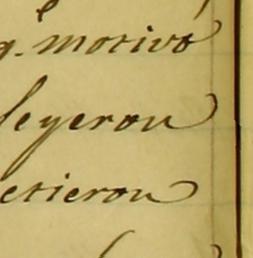 q. motivó
leyeron
etieron